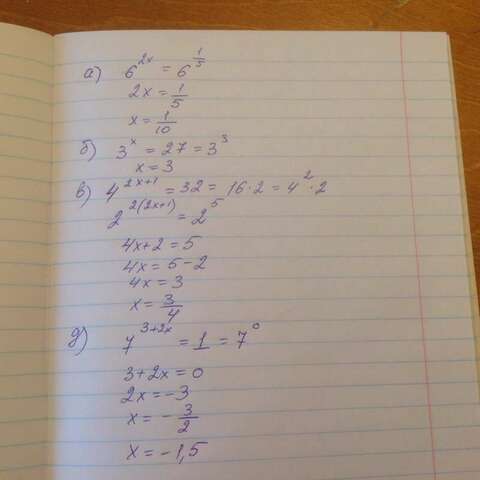 а) 6^{2x} = 6^{\frac{1}{5}}
2x = \frac{1}{5}
x = \frac{1}{10}
б) 3^x = 27 = 3^3
x = 3
в) 4^{2x+1} = 32 = 16·2 = 4^2·2
2^{2(2x+1)} = 2^5
4x+2 = 5
4x = 5-2
4x = 3
x = \frac{3}{4}
д) 7^{3+2x} = 1 = 7^0
3+2x = 0
2x = -3
x = -\frac{3}{2}
x = -1,5